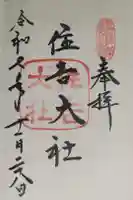 奉拝
住吉大社
令和六年十二月二八日
住吉
大社